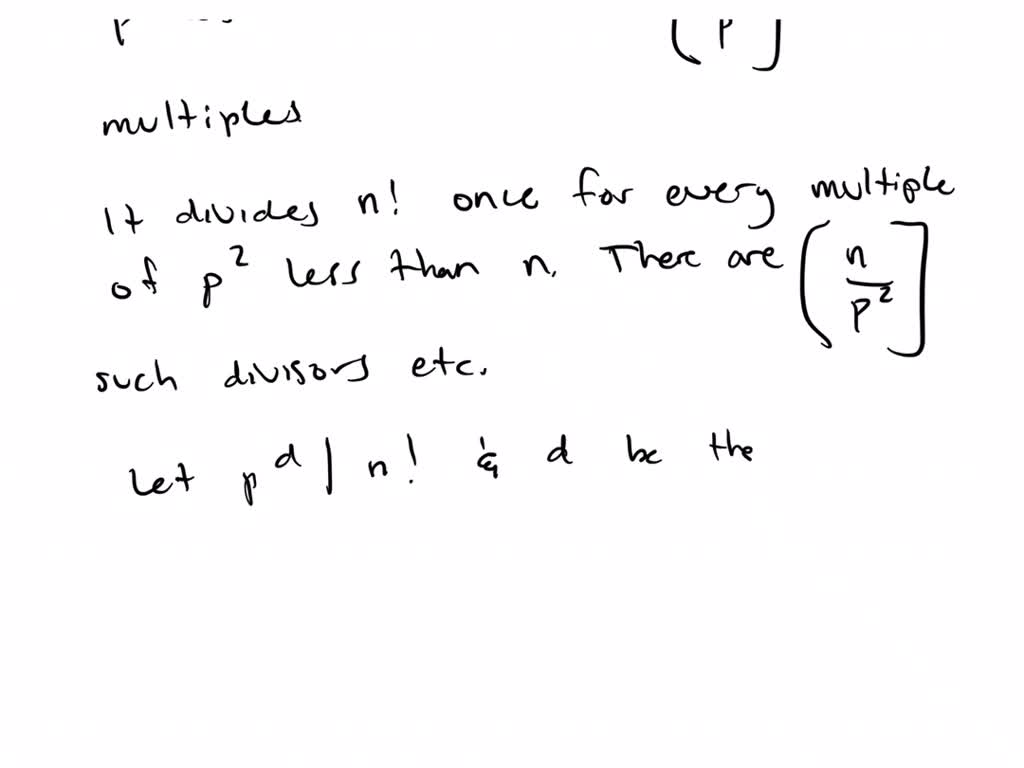 [p]
multiples
It divides n! once for every multiple
of p² less than n. There are [n/p²]
such divisors etc.
Let p^d | n! & d be the